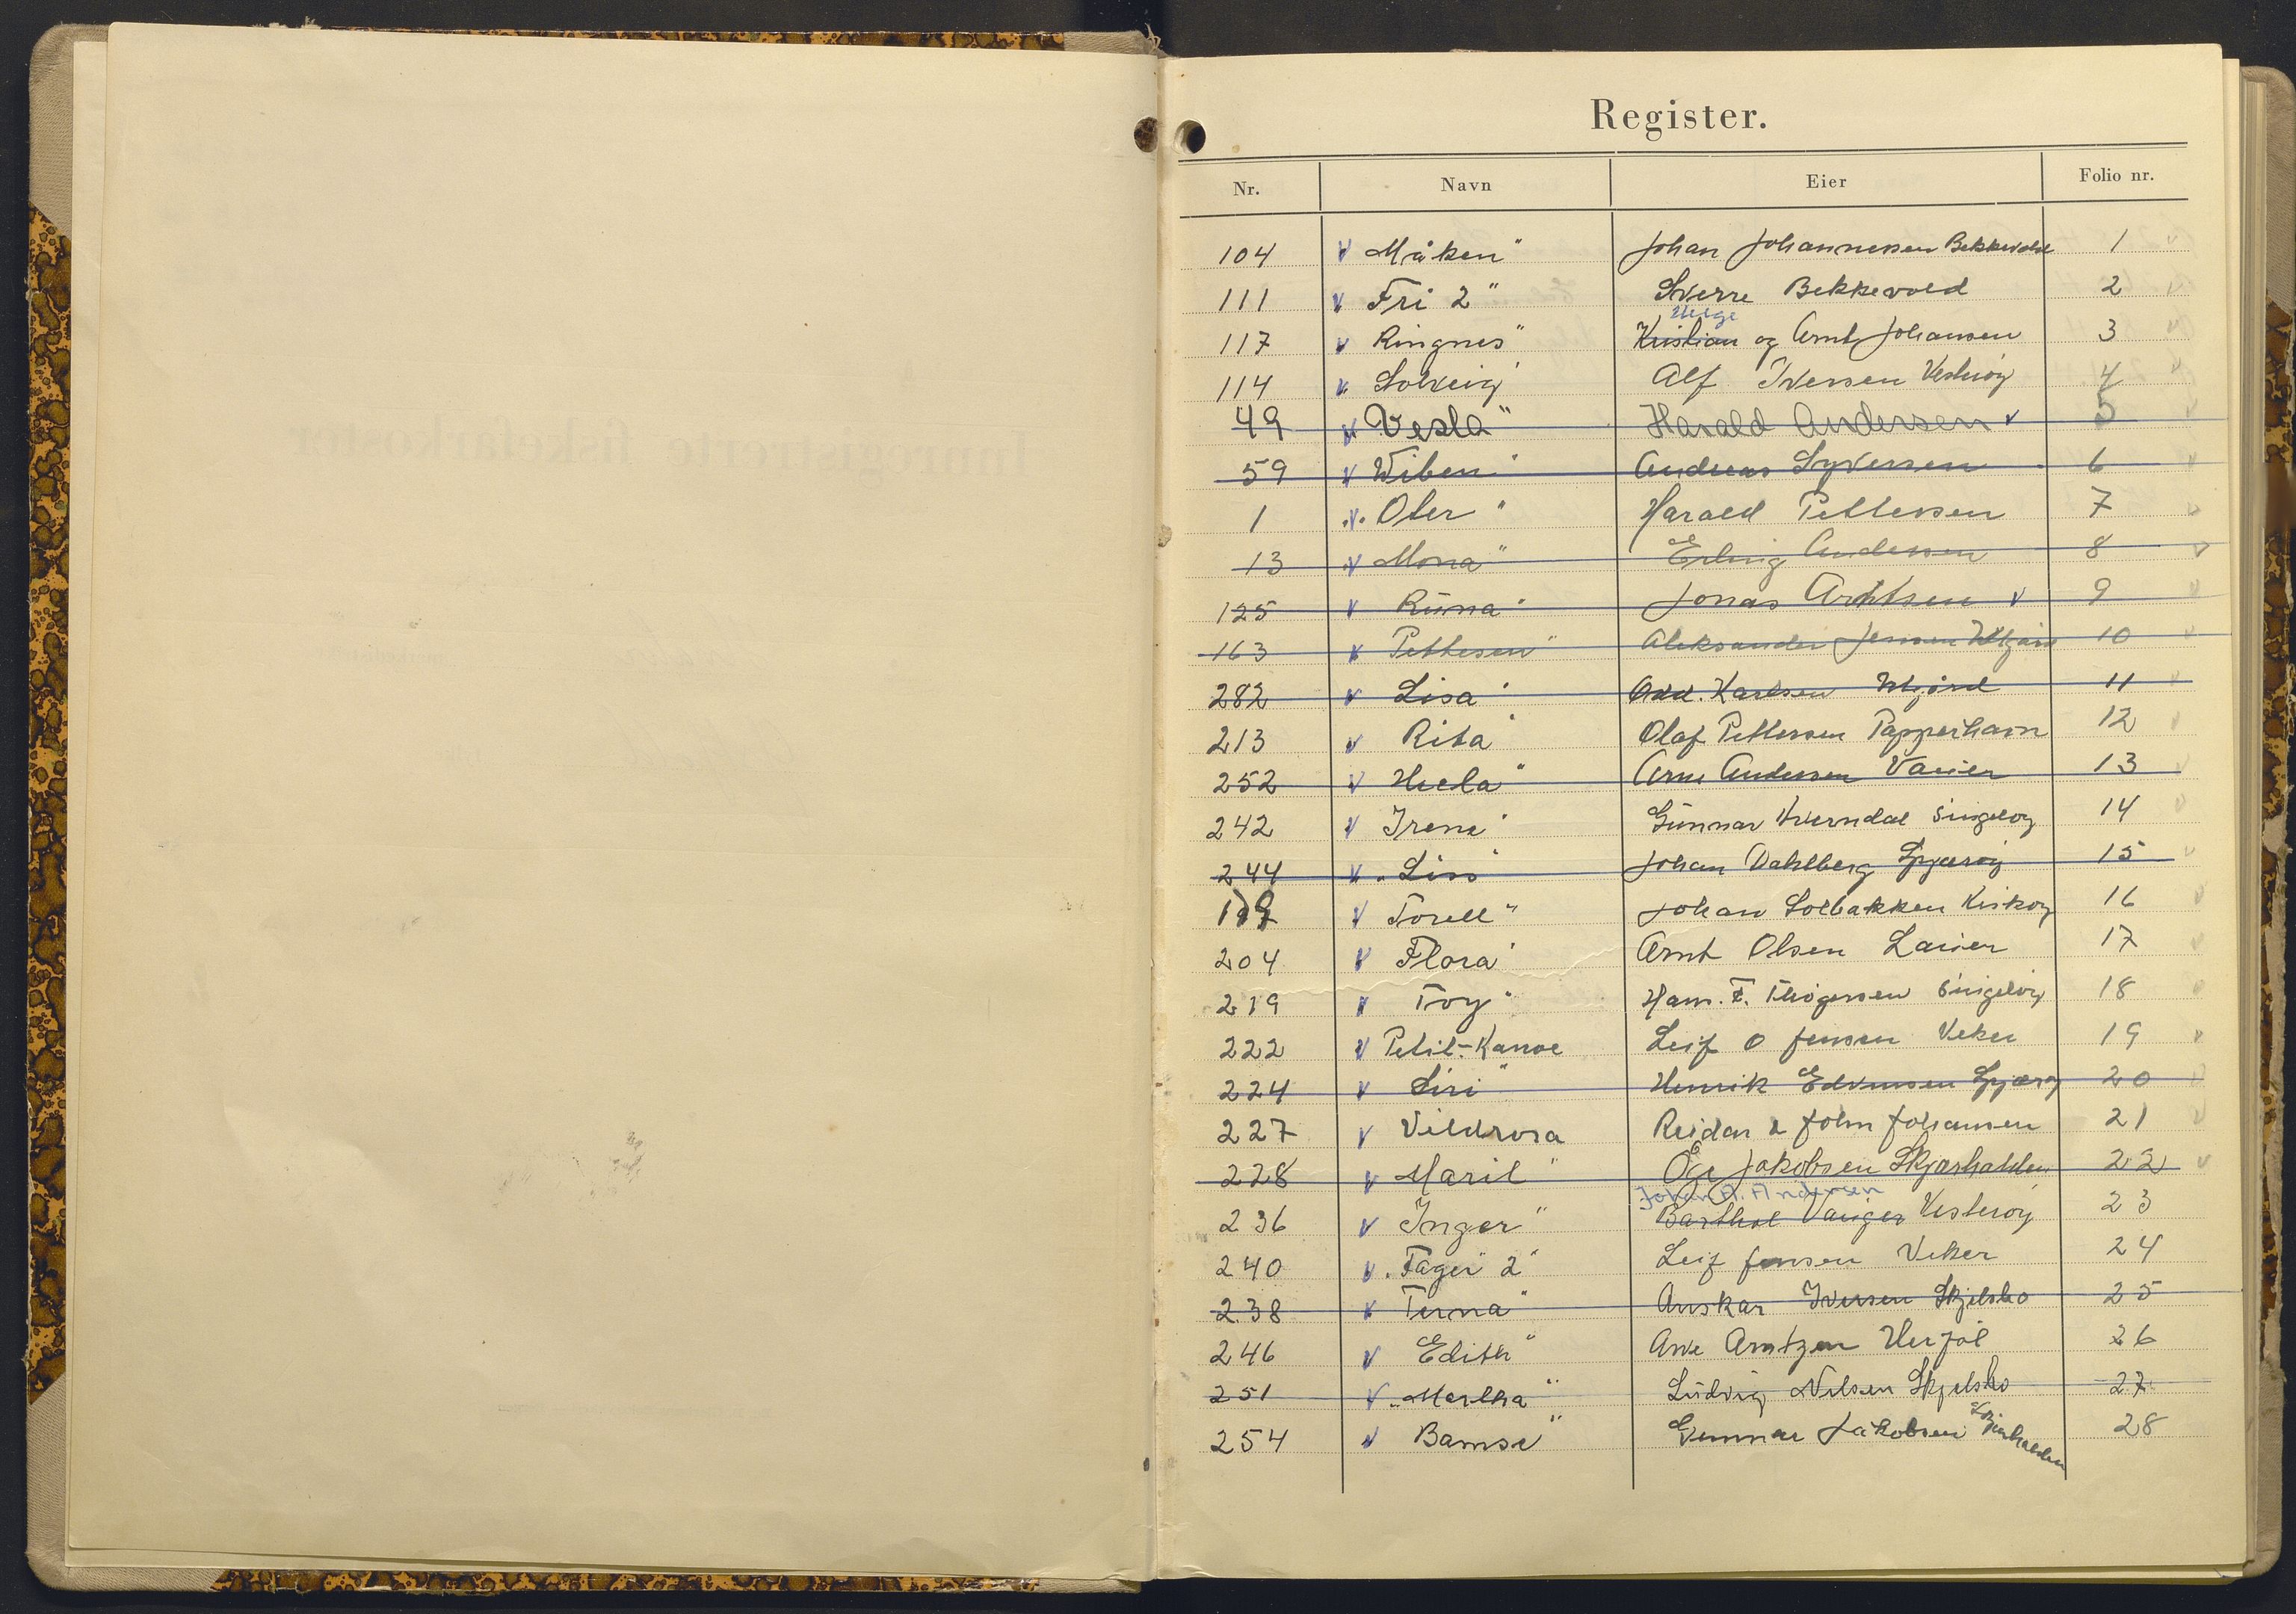 Register.
Nr. Navn Eier Folio nr.
104 "Måken" Johan Johannessen Bekkevold 1
111 "Fri 2" Sverre Bekkevold 2
Helge
117 "Ringnes" Kristian og Arnt Johansen 3
114 "Solveig" Alf Iversen Vesterøy 4
49 "Vesla" Harald Andersen 5
59 "Wiben" Andreas Syversen 6
1 "Oter" Harald Pettersen 7
13 "Mona" Erling Andersen 8
125 "Runa" Jonas Arntsen 9
163 "Pettersen" Aleksander Jensen Utgård 10
282 "Lisa" Odd. Karlsen Utgård 11
213 "Rita" Olaf Pettersen Papperhavn 12
252 Arne Andersen 13
242 "Irene" Gunnar Kverndal Singeløy 14
244 "Liss" Johan Dahlberg Spjærøy 15
"Torell" Johan Solbakken Kirkøy 16
204 "Flora" Arnt Olsen Lauer 17
219 "Toy" Hans. F. Thøgersen Singeløy 18
222 Petit-Kanoe Leif O Jensen Viker 19
224 "Siri" Henrik Edvinsen Spjærøy 20
227 Vildrosa Reidar & John Johansen 21
228 "Maril" Jakobsen Skjærhalden 22
Johan A. Andersen
236 "Inger" Barthol Vauger Vesterøy 23
240 "Fager 2" Leif Jensen Viker 24
238 "Terna" Anskar Iversen Skjelsbo 25
246 "Edith" Arve Arntzen Herføl 26
251 "Martha" Ludvig Nilsen Skjelsbo 27
254 "Bamse" Gunnar Jakobsen Skjærhalden 28